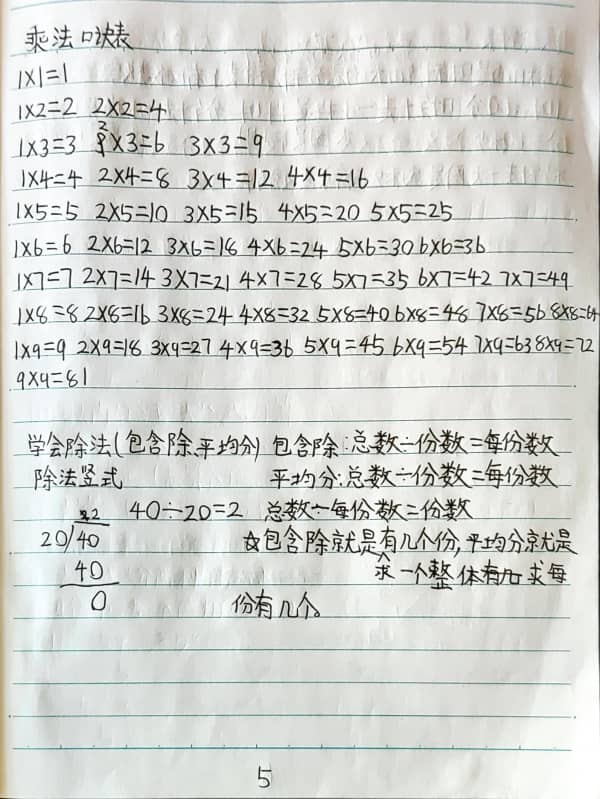 乘法口诀表
1×1=1
1×2=2 2×2=4
1×3=3 2×3=6 3×3=9
1×4=4 2×4=8 3×4=12 4×4=16
1×5=5 2×5=10 3×5=15 4×5=20 5×5=25
1×6=6 2×6=12 3×6=18 4×6=24 5×6=30 6×6=36
1×7=7 2×7=14 3×7=21 4×7=28 5×7=35 6×7=42 7×7=49
1×8=8 2×8=16 3×8=24 4×8=32 5×8=40 6×8=48 7×8=56 8×8=64
1×9=9 2×9=18 3×9=27 4×9=36 5×9=45 6×9=54 7×9=63 8×9=72
9×9=81
学会除法(包含除、平均分) 包含除:总数÷份数=每份数
除法竖式 平均分:总数÷份数=每份数
2 40÷20=2 总数÷每份数=份数
20)40 ☆包含除就是有几个份,平均分就是
40 求一个整体有 求每
0 份有几个。
5